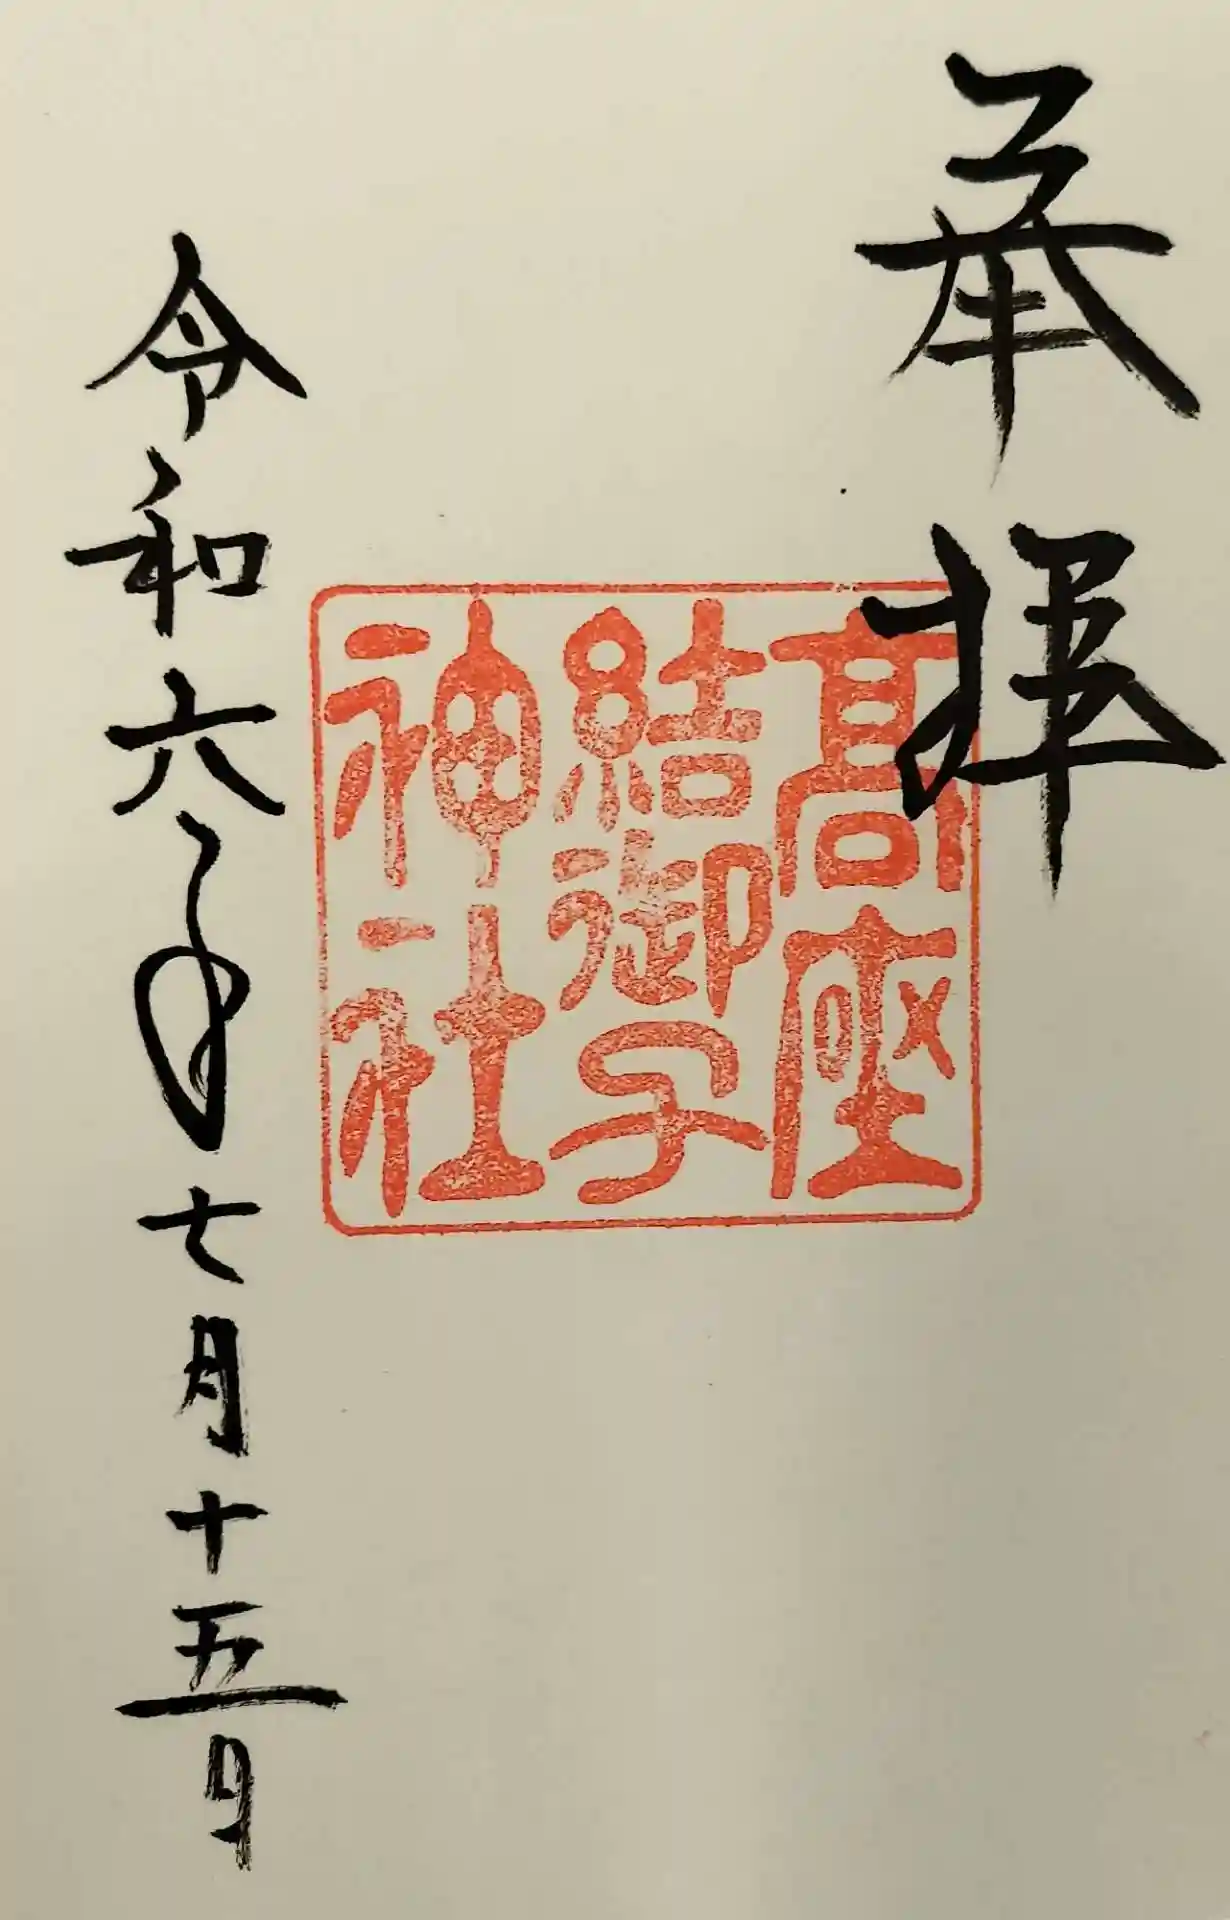 奉拝
髙座
結御子
神社
令和六年七月十五日